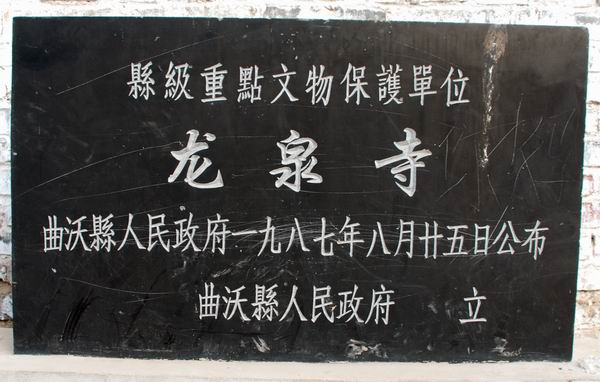 縣級重點文物保護單位
龙泉寺
曲沃縣人民政府一九八七年八月廿五日公布
曲沃縣人民政府 立